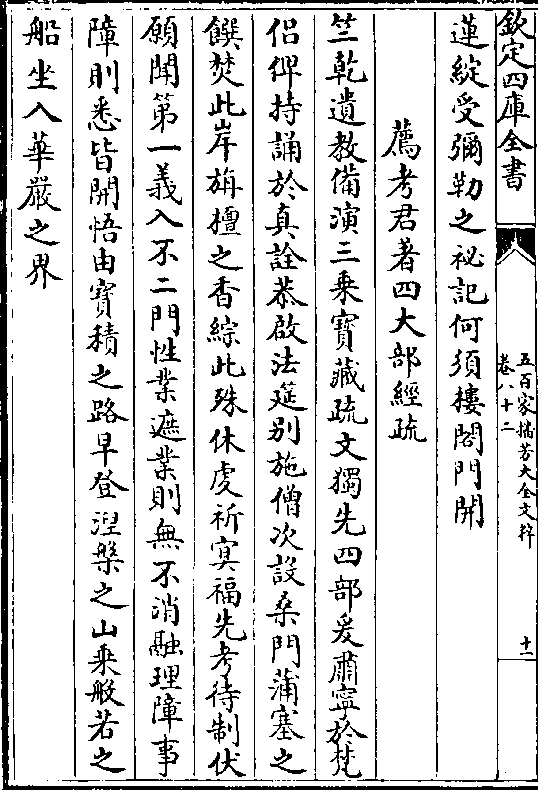 欽定四庫全書
五百家播芳大全文粹
卷八十二
十二
蓮綻受彌勒之祕記何須樓閣門開
薦考君著四大部經疏
竺乾遺教備演三乗寳藏疏文獨先四部爰肅寧於梵
侣俾持誦於真詮恭啟法筵别施僧次設桑門蒲塞之
饌焚此岸旃檀之香綜此殊休虔祈㝠福先考待制伏
願聞第一義入不二門性業遮業則無不消融理障事
障則悉皆開悟由寳積之路早登湼槃之山乗般若之
船坐入華嚴之界